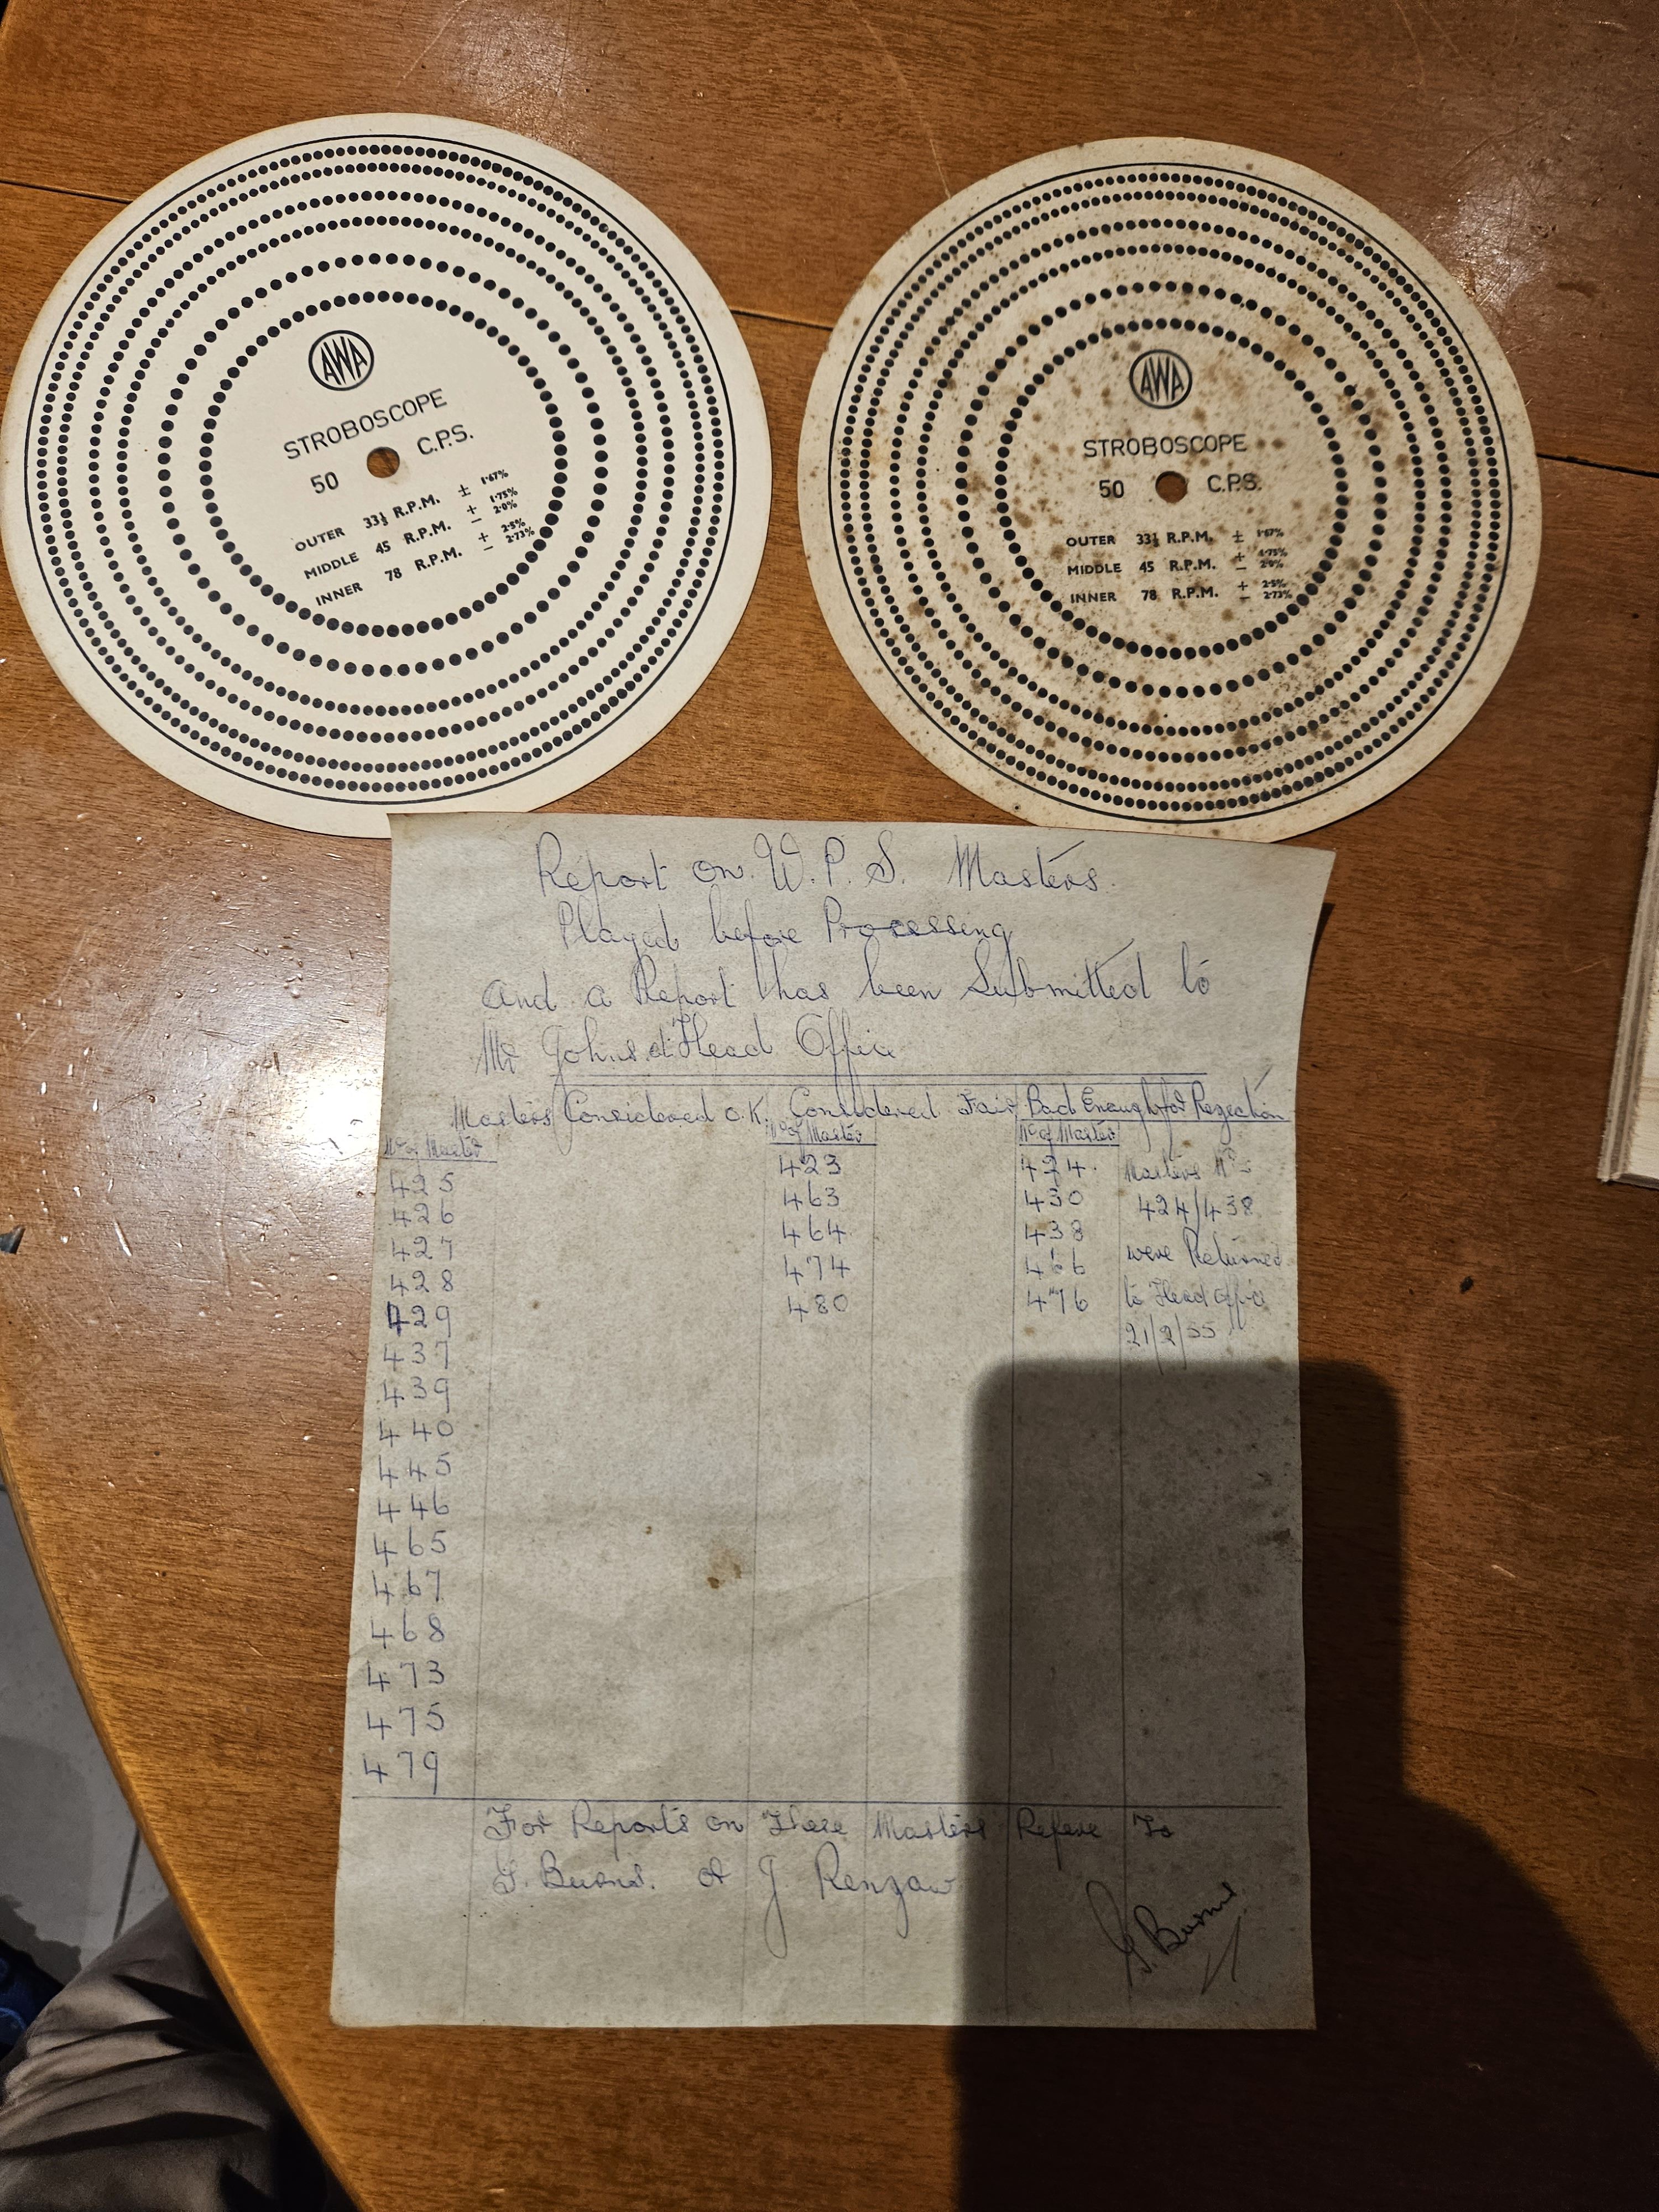 AWA
STROBOSCOPE
50 C.P.S.
OUTER 33⅓ R.P.M. ± 1·67%
MIDDLE 45 R.P.M. + 1·75% − 2·0%
INNER 78 R.P.M. + 2·5% − 2·73%
AWA
STROBOSCOPE
50 C.P.S.
OUTER 33⅓ R.P.M. ± 1·67%
MIDDLE 45 R.P.M. + 1·75% − 2·0%
INNER 78 R.P.M. + 2·5% − 2·73%
Report on W.P.S. Masters.
Played before Processing
and a Report has been Submitted to
Mr Johns at Head Office
Masters Considered O.K. Considered Fair Bad Enough for Rejection
No of Master No of Master No of Master
425 423 424 Masters Nos
426 463 430 424/438
427 464 438 were Returned
428 474 466 to Head Office
429 480 476 21/2/55
437
439
440
445
446
465
467
468
473
475
479
For Reports on These Masters Refere To
G. Burns. or J.
G. Burns.